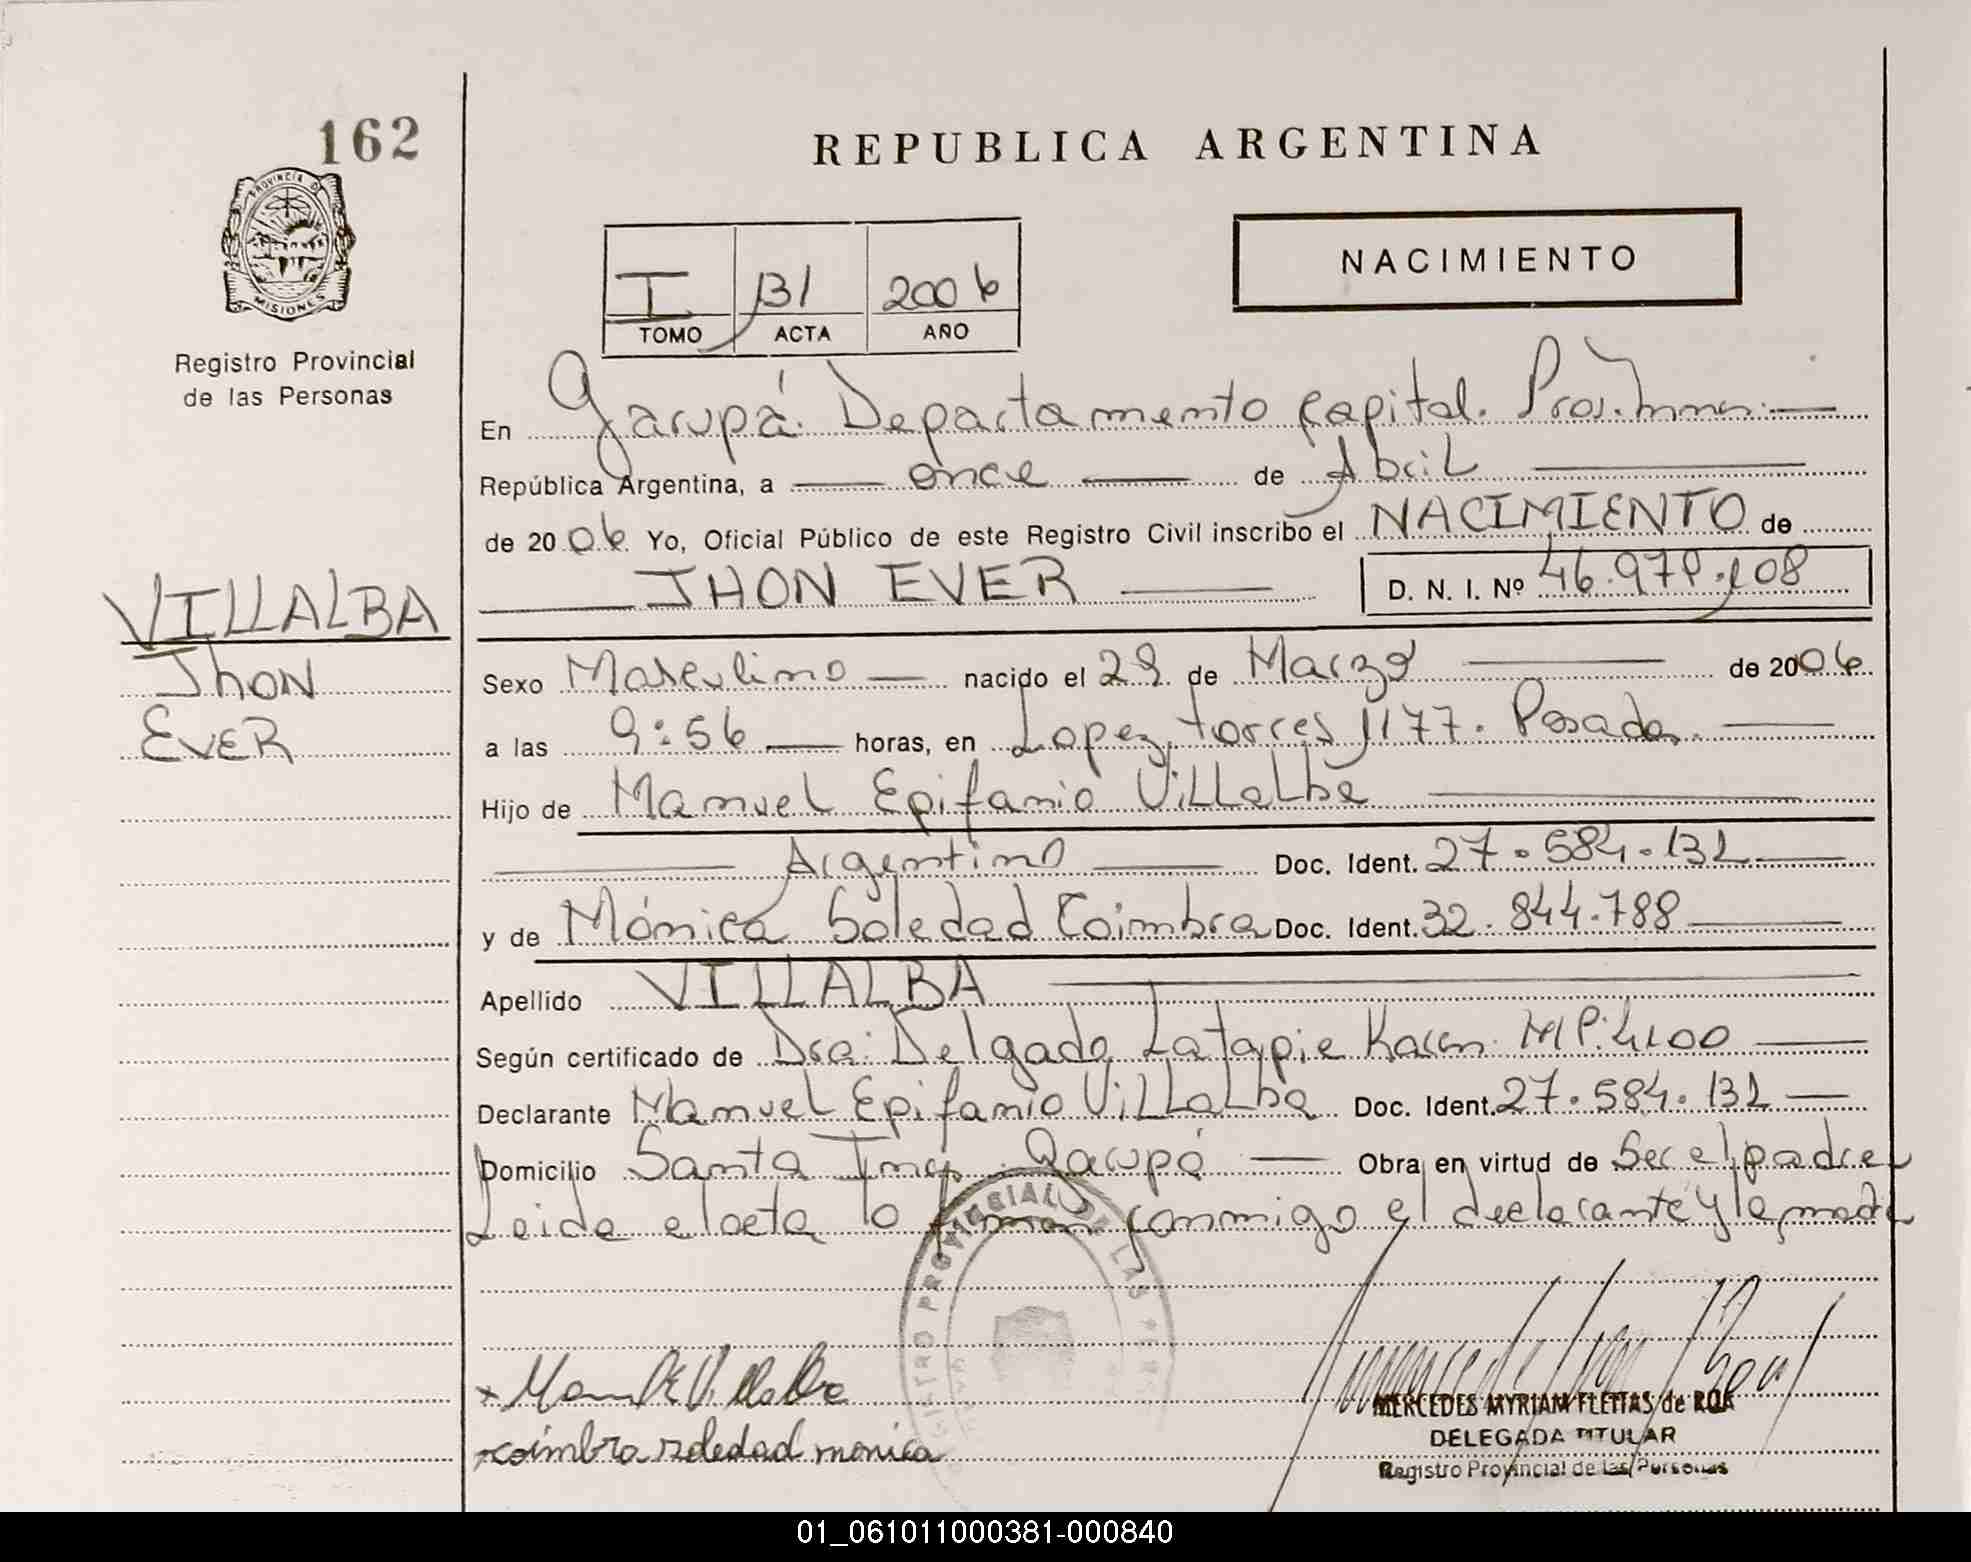 162
REPUBLICA ARGENTINA
PROVINCIA DE
MISIONES
Registro Provincial
de las Personas
NACIMIENTO
I 131 2006
TOMO ACTA AÑO
En Garupá. Departamento Capital. Prov. Mnes.
República Argentina, a once de Abril
de 2006 Yo, Oficial Público de este Registro Civil inscribo el NACIMIENTO de
JHON EVER D. N. I. Nº
VILLALBA
Jhon
EVER
Sexo Masculino nacido el 29 de Marzo de 2006
a las 9:56 horas, en Lopez torres 1177. Posadas.
Hijo de Manuel Epifanio Villalba
Argentino Doc. Ident. 27.584.132
y de Mónica Soledad Coimbra Doc. Ident. 32.844.788
Apellido VILLALBA
Según certificado de Dra. Delgado Latapie Karen MP. 4100
Declarante Manuel Epifanio Villalba Doc. Ident. 27.584.132
Domicilio Santa Ines. Garupá Obra en virtud de Ser el padre
Leida el acta la firman conmigo el declarante y la madre
REGISTRO PROVINCIAL DE LAS PERS
x Manuel E Villalba
x coimbra soledad monica
MERCEDES MYRIAM FLEITAS de ROA
DELEGADA TITULAR
Registro Provincial de las Personas
01_061011000381-000840